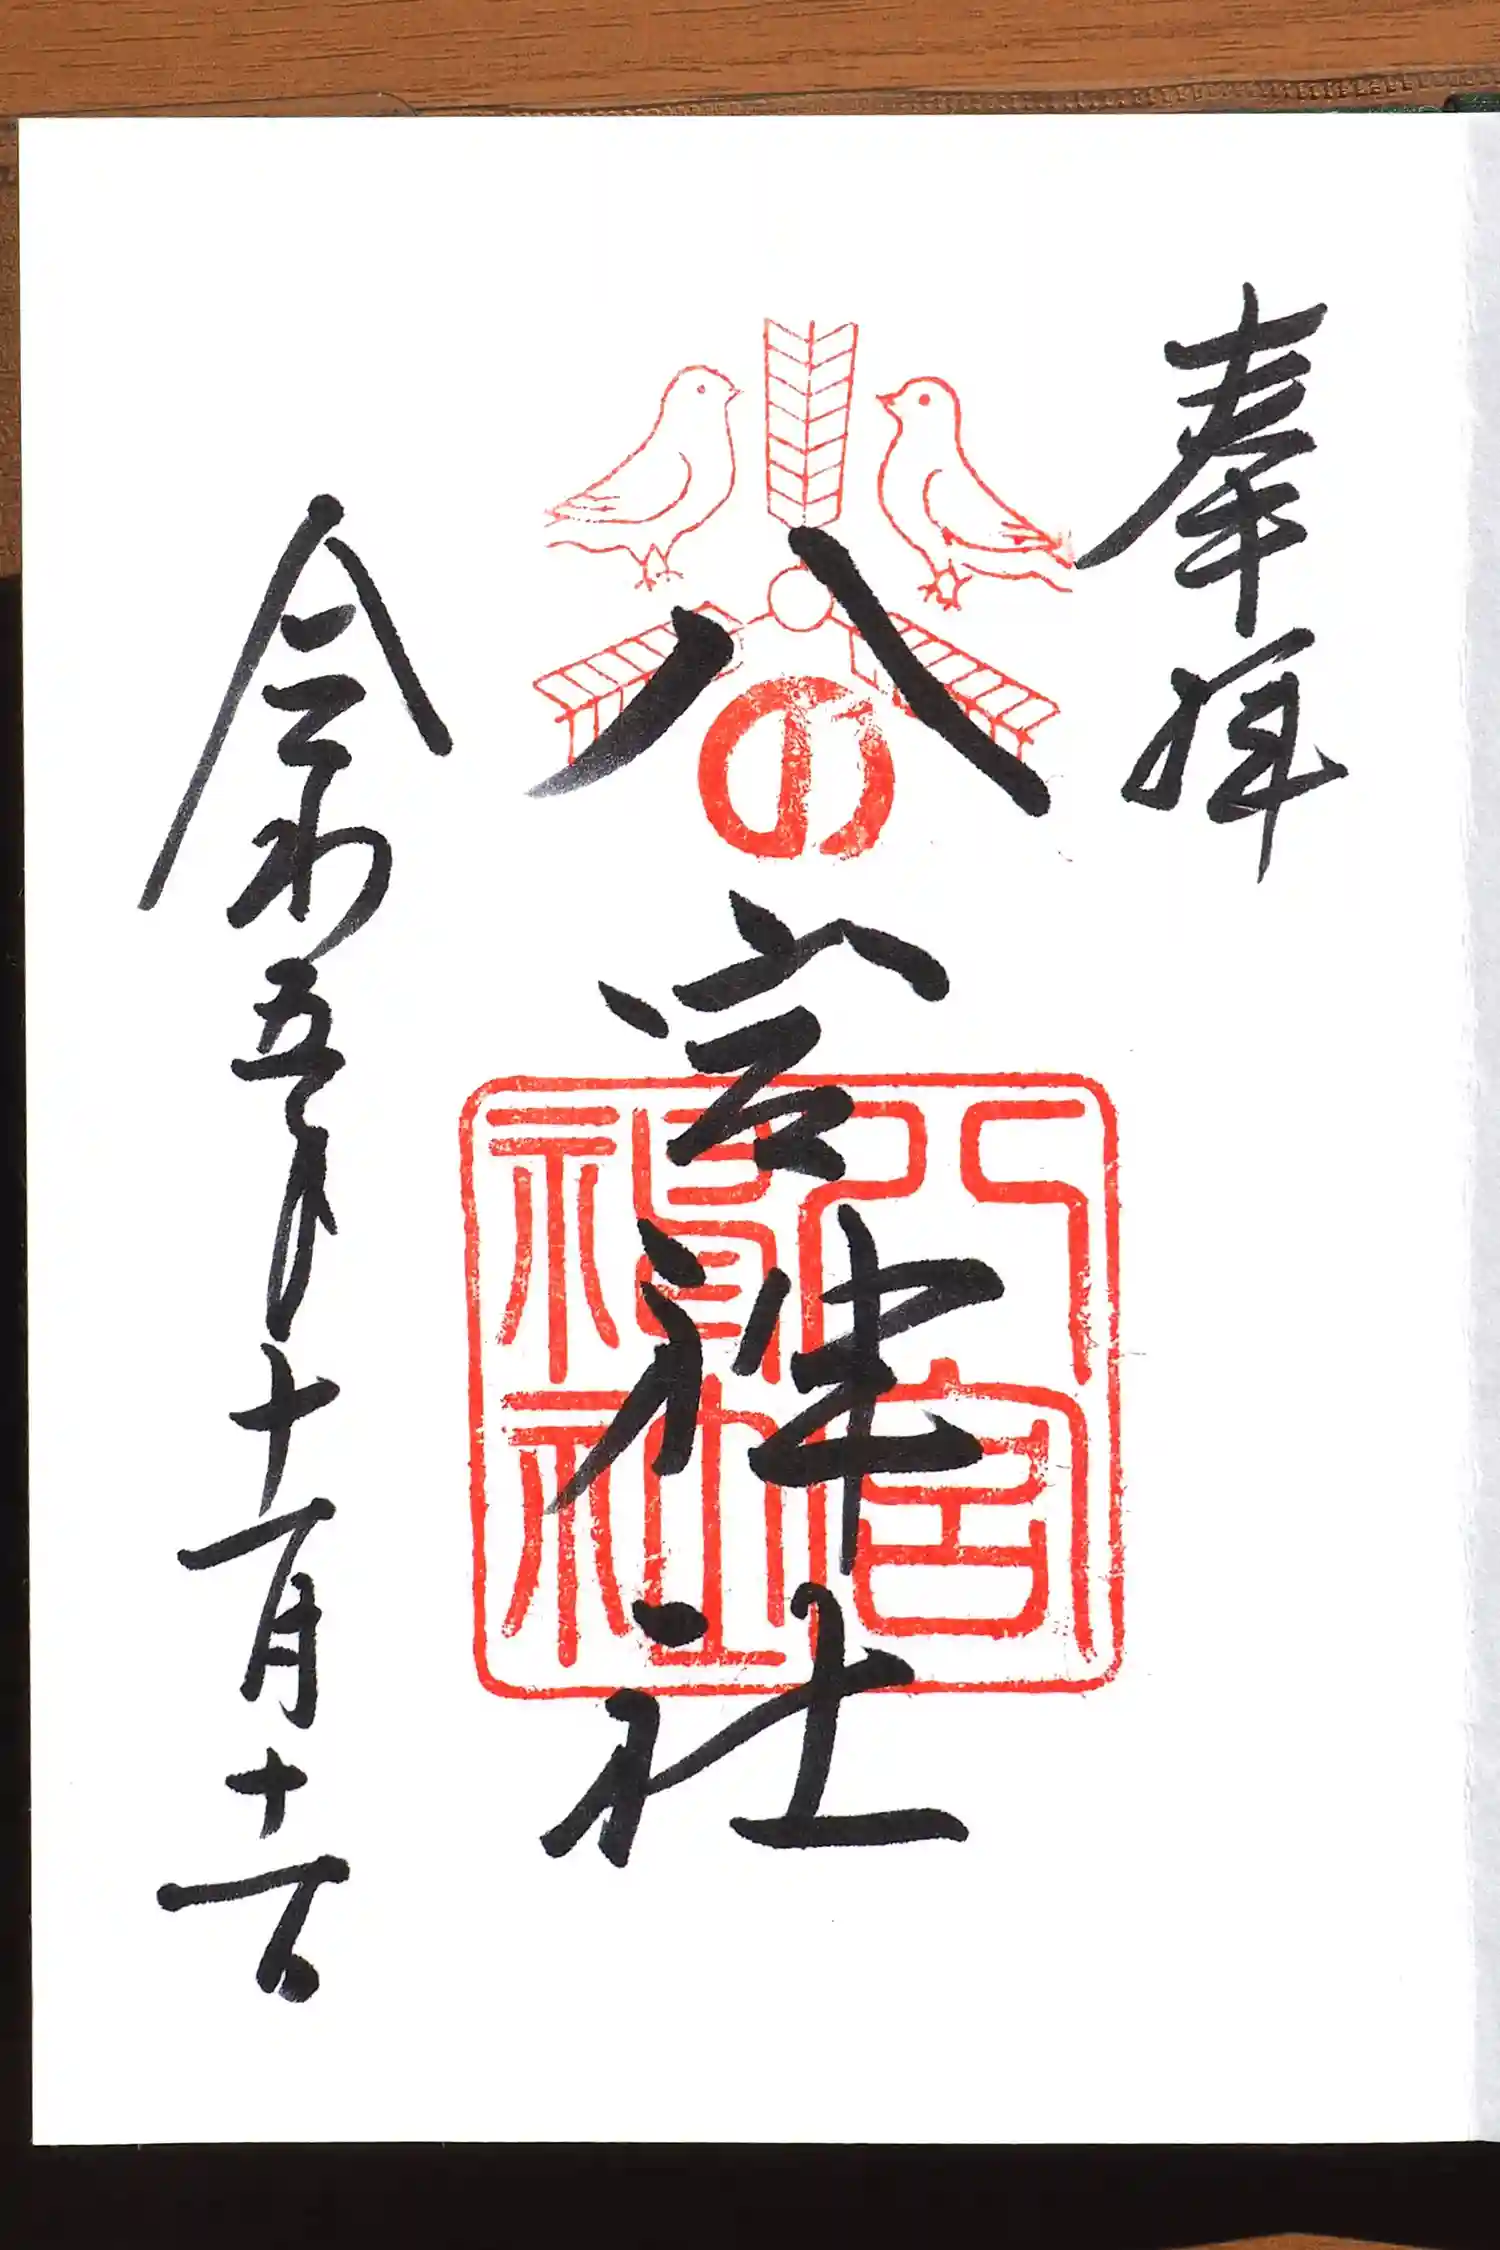 奉拝
八宮神社
の
八宮神社
令和五年十一月十一日